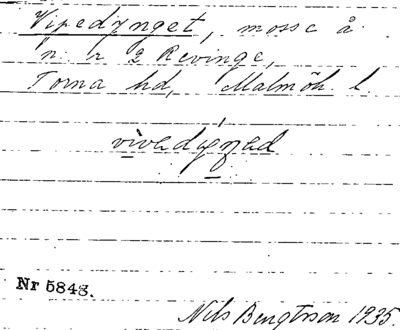 Vipedynget, mosse å
n:r 2 Revinge,
Torna hd, Malmöh l.
Nr 5843.
Nils Bengtsson 1935.